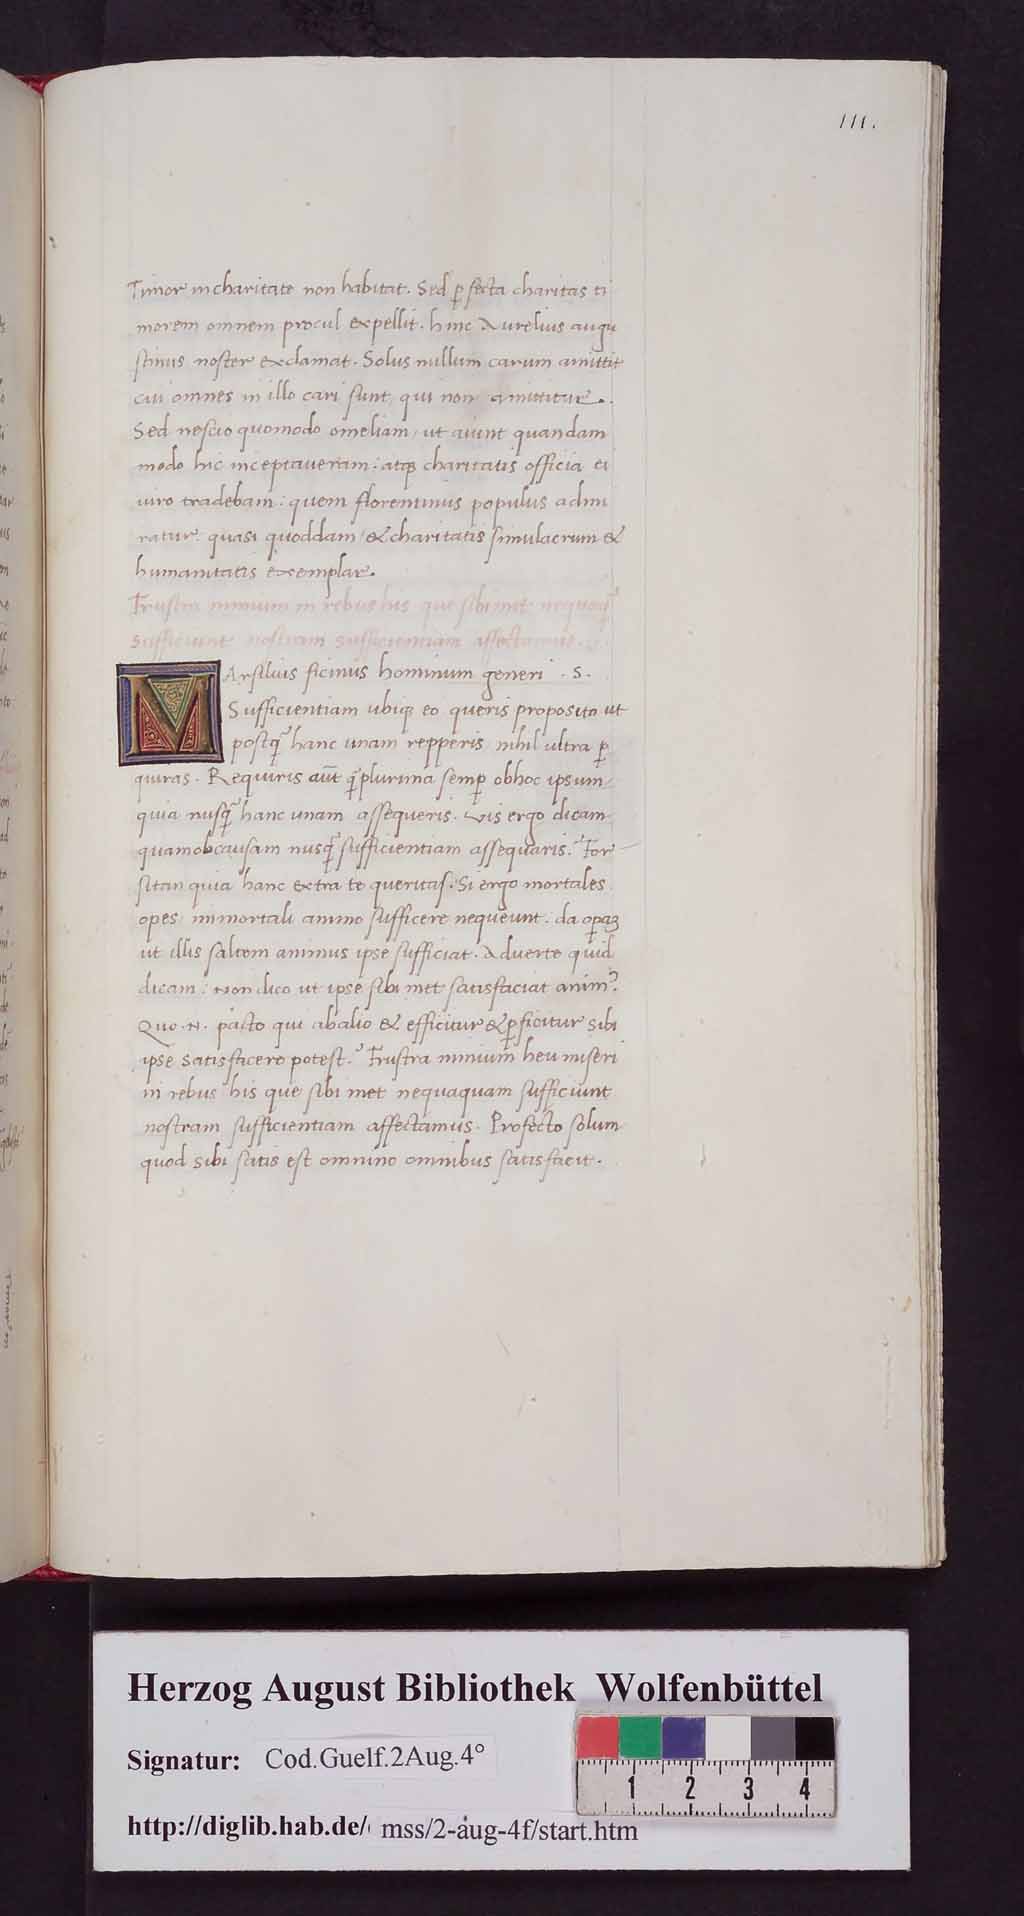 111.
Timor in charitate non habitat. Sed ꝑfecta charitas ti
morem omnem procul expellit. hinc Aurelius augu
stinus noster exclamat. Solus nullum carum amittit
cui omnes in illo cari sunt, qui non amittitur.
Sed nescio quomodo omeliam, ut aiunt quandam
modo hic inceptaveram: atqꝫ charitatis officia ei
uiro tradebam: quem florentinus populus admi
ratur. quasi quoddam & charitatis simulacrum &
humanitatis exemplar.
Frustra nimium in rebus his que sibimet nequaqᷓ
sufficiunt nostram sufficientiam affectamus.
MArsilius ficinus hominum generi . S.
Sufficientiam ubiqꝫ eo queris proposito ut
postqᷓ hanc unam repperis, nihil ultra ꝑ
quiras. Requiris aūt qᷓplurima semꝑ ob hoc ipsum,
quia nusqᷓ hanc unam assequeris. Vis ergo dicam
quamobcausam nusqᷓ sufficientiam assequaris? For
sitan quia hanc extra te queritas. Si ergo mortales
opes immortali animo sufficere nequeunt: da oꝑaꝫ
ut illis saltem animus ipse sufficiat. Aduerte quid
dicam: Non dico ut ipse sibi met satisfaciat anim⁹.
Quo .N. pacto qui ab alio & efficitur & ꝑficitur sibi
ipse satisfacere potest? Frustra nimium heu miseri
in rebus his que sibi met nequaquam sufficiunt
nostram sufficientiam affectamus. Profecto solum
quod sibi satis est omnino omnibus satisfacit.
Herzog August Bibliothek Wolfenbüttel
Signatur: Cod.Guelf.2Aug.4°
http://diglib.hab.de/ mss/2-aug-4f/start.htm
1 2 3 4